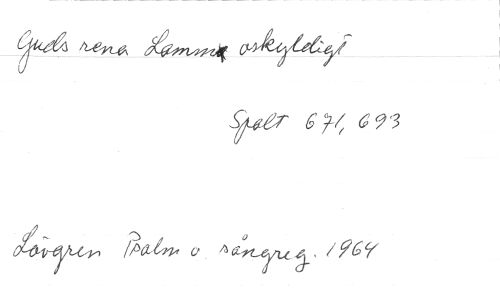 Guds rena Lamm oskyldigt
Spalt 671, 693
Lövgren Psalm o sångreg. 1964